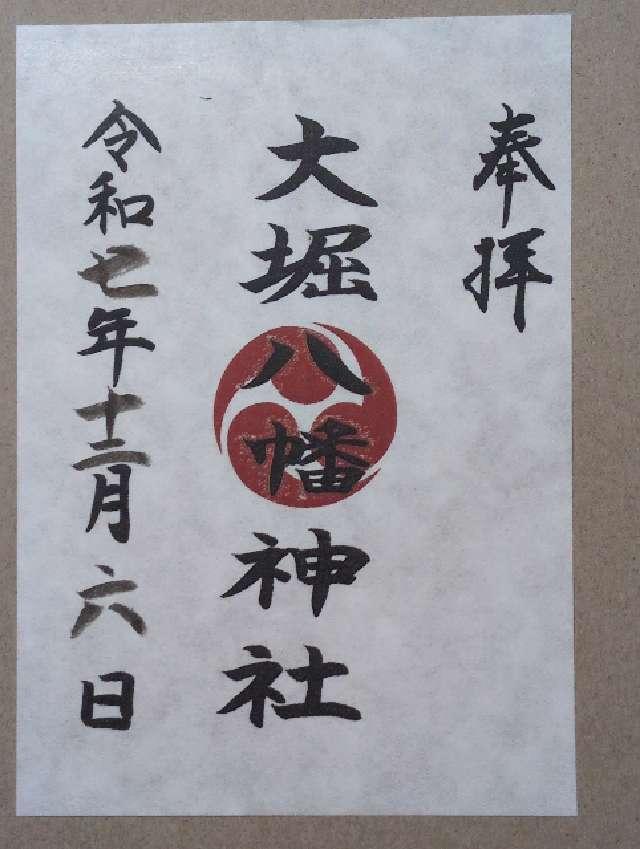 奉拝
大堀八幡神社
令和七年十二月六日